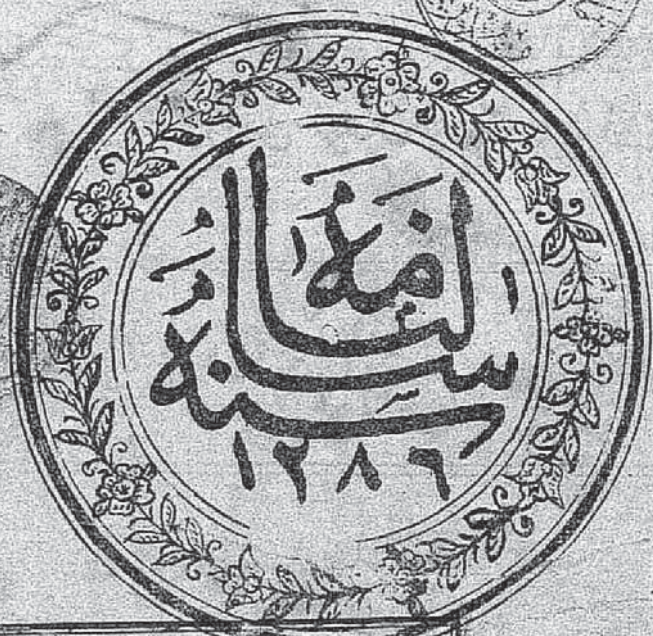 سالنامه
سنه
١٢٨٦